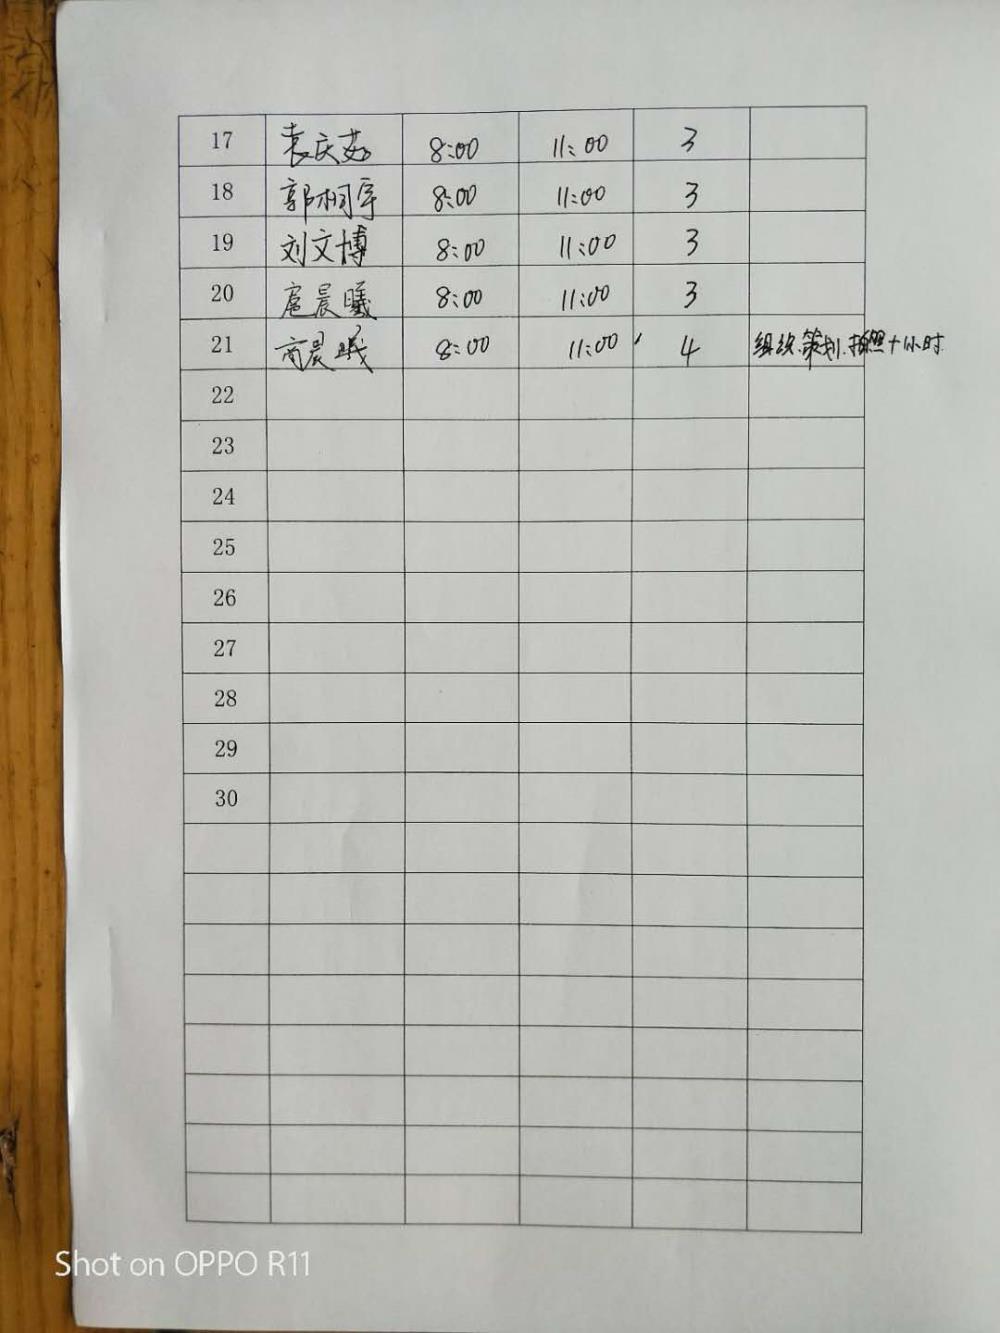 17 袁庆茹 8:00 11:00 3
18 郭桐宇 8:00 11:00 3
19 刘文博 8:00 11:00 3
20 扈晨曦 8:00 11:00 3
21 商晨曦 8:00 11:00 4 组织.策划.拍照+1小时
22
23
24
25
26
27
28
29
30
Shot on OPPO R11